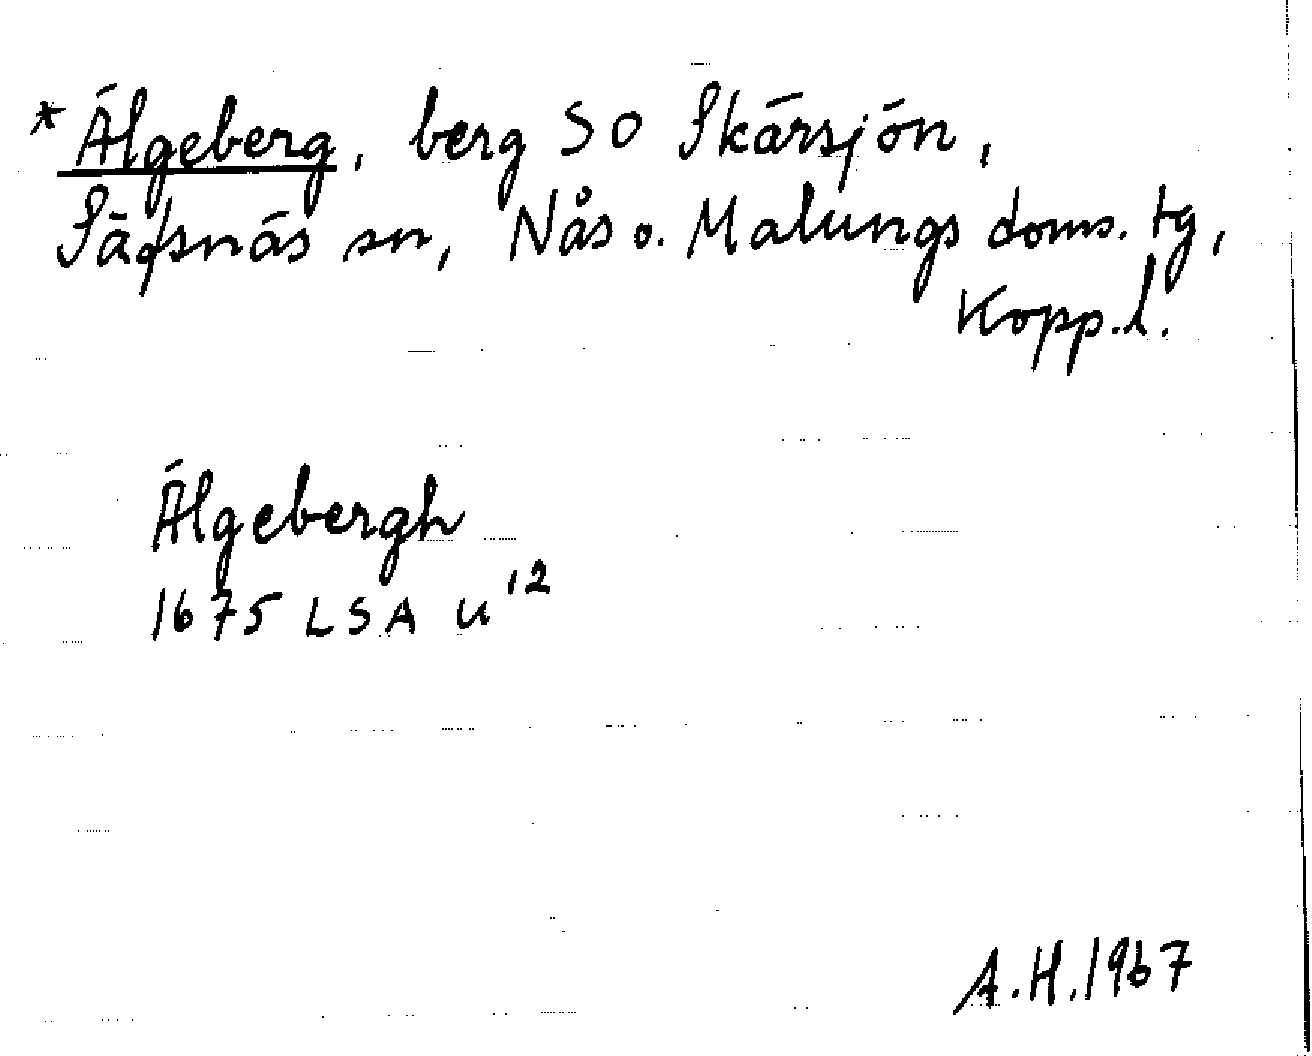 *Älgeberg, berg SO Skärsjön,
Säfsnäs sn, Nås o. Malungs doms. tg,
Kopp.l.
Älgebergh
1675 LSA U'2
A.H. 1967